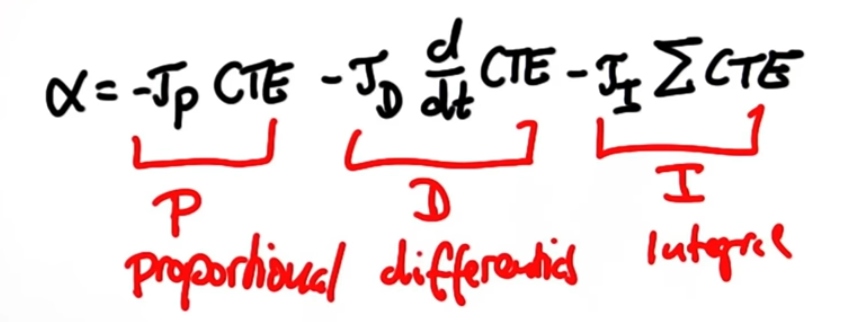 α = -τ_P CTE - τ_D d/dt CTE - τ_I Σ CTE
P D I
proportional differential integral